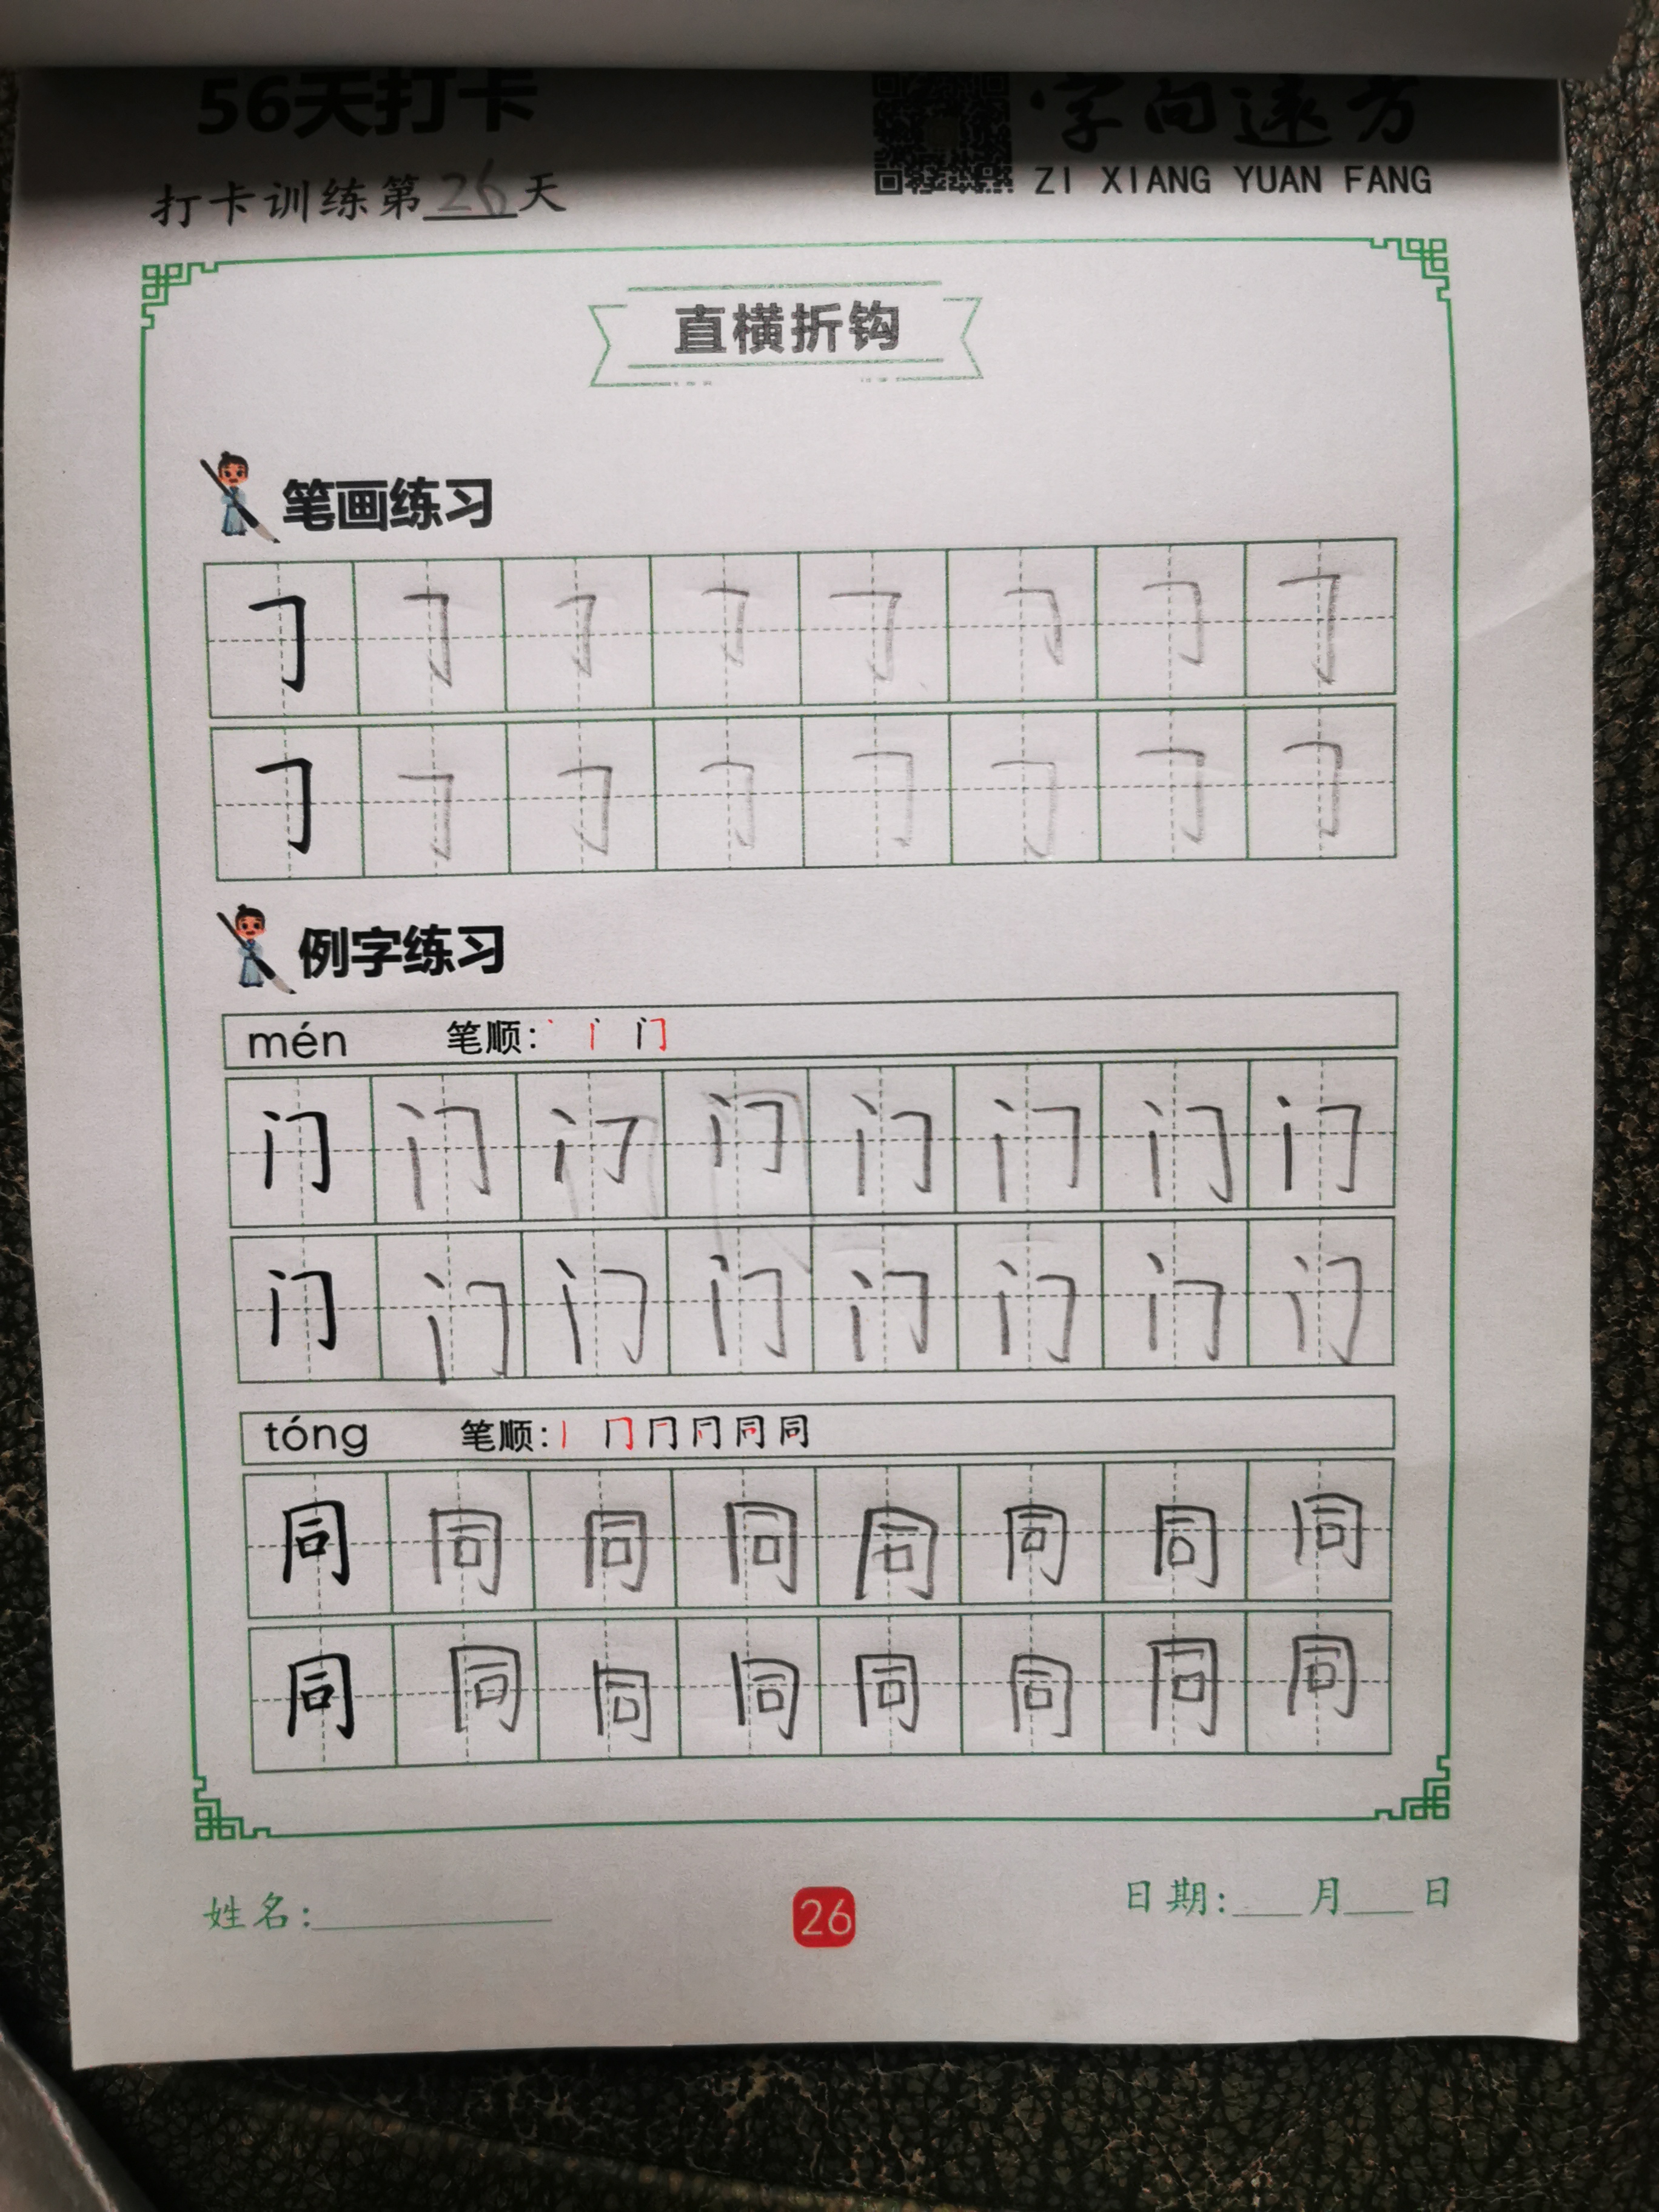 56天打卡
字向远方
打卡训练第26天
ZI XIANG YUAN FANG
直横折钩
笔画练习
𠃌 𠃌 𠃌 𠃌 𠃌 𠃌 𠃌 𠃌
𠃌 𠃌 𠃌 𠃌 𠃌 𠃌 𠃌 𠃌
例字练习
mén 笔顺: 丶 门
门 门 门 门 门 门 门 门
门 门 门 门 门 门 门 门
tóng 笔顺: 丨 冂 同 同
同 同 同 同 同 同 同 同
同 同 同 同 同 同 同 同
姓名:
26
日期: 月 日